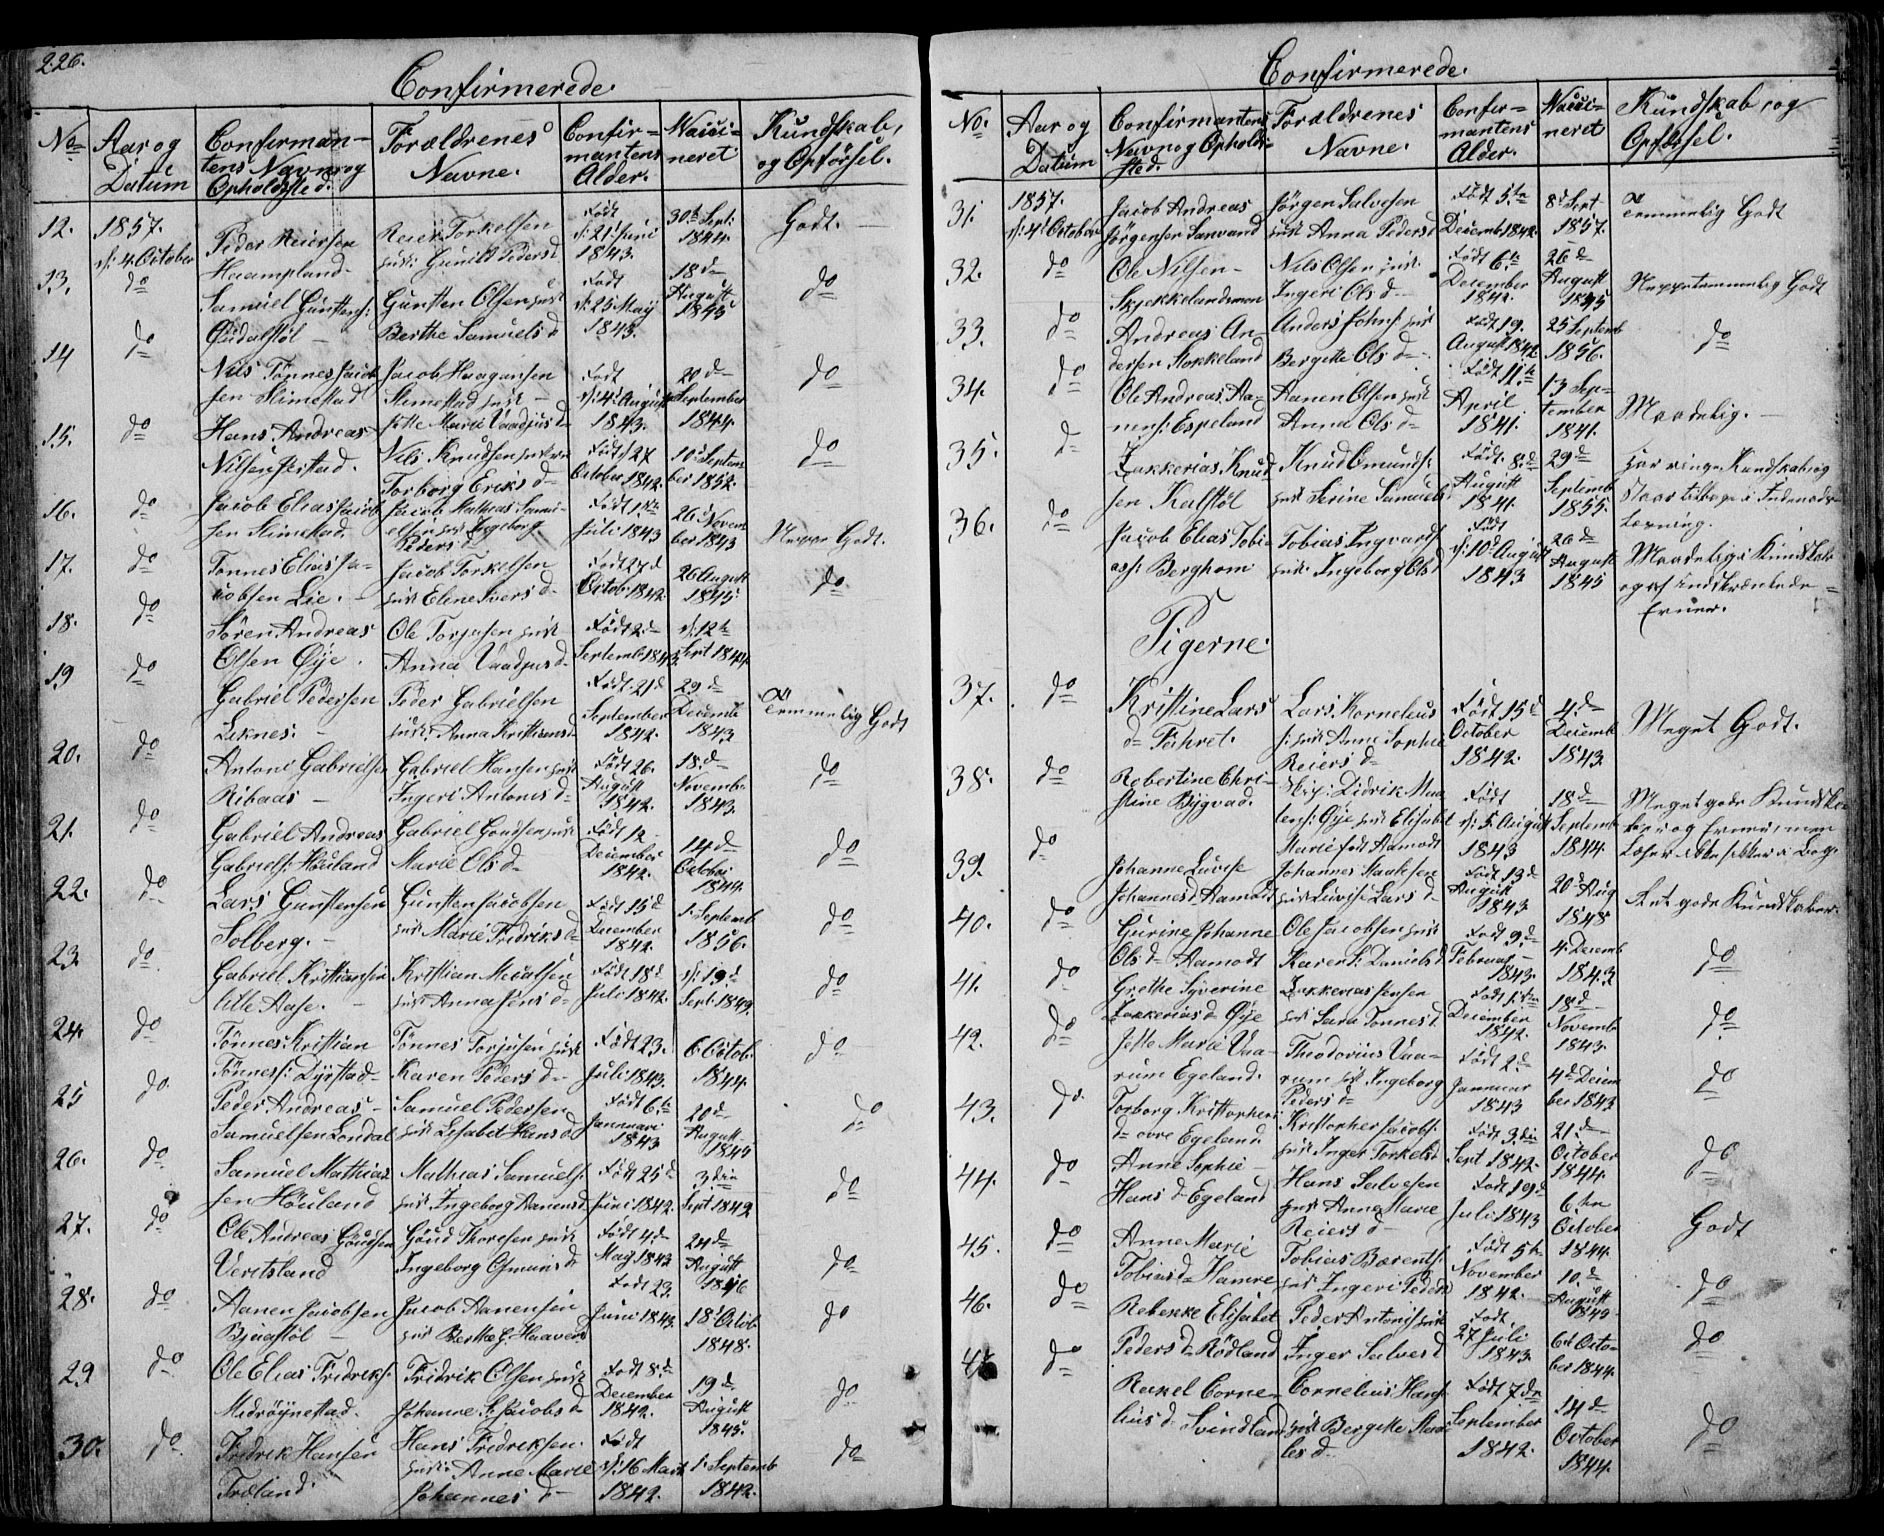 226.
Confirmerede.
No
Aar og
Datum
Confirman-
tens Navn og
Opholdsted.
Forældrenes
Navne.
Confir-
mantens
Alder.
Vacci-
neret
Kundskab,
og Opførsel.
12.
1857.
d: 4. October
Peder Reiersen
Haampland.
Reier Torkelsen
Gunild Peders d
Født
d: 21 Juni
1843.
30te Sept:
1844.
Godt.
13.
do
Samuel Gunstens:
Gunsten Olsen
Berthe Samuels d
Født
d: 25 May
1843.
18 de
August
1843
do
14
do
Nils Tønnes Jacob
sen Slimestad
Jacob Haagansen
Slimestad
Jette Marie Vaadjus d
Født
d: 4 August
1843.
20 de
September
1844
do
15.
do
Hans Andreas
Nilsen Jerstad.
Nils Knudsen
Torborg Eriks d
Født 27
October 1842.
10 Septem
ber 1852.
do
16.
do
Jacob Elias Jacob
sen Slimestad.
Jacob Mathias Samu-
elsen Ingeborg
Peders d
Født 1ste
Juli 1843
26 Novem
ber 1843
Neppe Godt.
17.
do
Tønnes Elias Ja-
cobsen Lie.
Jacob Torkelsen
Eline Ivers d
Født 27 d
Octob. 1842.
26 August
1845.
do
18.
do
Søren Andreas
Olsen Øye.
Ole Torjusen
Anna Vaadjus d
Født 2 de
Septemb 1843.
d: 12te
Sept 1844.
19
do
Gabriel Pedersen
Liknes.
Peder Gabrielsen
Anna Kristians d
Født 21 d
September
1842.
29 de
Decemb
1843
Temmelig Godt
20.
do
Antoni Gabrielsen
Ribaas
Gabriel Hansen
Ingeri Antonis d
Født 26.
August
1842.
18 de
Novemb.
1843.
do
21.
do
Gabriel Andreas
Gabriels: Houland
Gabriel Goudsen
Marie Ols d
Født 12
December
1842.
14 de
October
1844
do
22.
do
Lars Gunstensen
Solberg.
Gunsten Jacobsen
Marie Fredriks d
Født 15 d
December
1842.
1. Septemb
1856.
do
23.
do
Gabriel Kristiansen
lille Aase.
Kristian Micalsen
Anna Jens d
Født 18 d
Juli 1842.
d: 19 d
Sept: 1849.
do
24.
do
Tønnes Kristian
Tønnes: Dyrstad
Tønnes Torjusen
Karen Peders d
Født 23.
Juli 1843.
6 Octob.
1844.
do
25
do
Peder Andreas
Samuelsen Londal
Samuel Pedersen
Lisabet Hans d
Født 6te
Januari
1843
20 de
August
1845
do
26.
do
Samuel Mathias
sen Houland
Mathias Samuels:
Ingeborg Aanens d
Født 25 d
Juni 1842.
3 die
Sept 1842
do
27.
do
Ole Andreas Goudsen
Veritsland
Goud Thoresen
Ingeborg Osmuns d
Født 4 de
May 1842
24 de
August
1846
do
28.
do
Aanen Jacobsen
Bjuastøl
Jacob Aanensen
Berthe G. Haavers
Født 23.
Juni 1843.
18 Octob.
1848.
do
29
do
Ole Elias Fredriks:
Midrøynestad.
Fridrik Olsen
Johanne S. Jacobs d
Født 8. d
December
1842.
19 d
August
1845.
do
30.
do
Fredrik Hansen
Træland.
Hans Fredriksen
Anne Marie
Johannes d
Født
d: 16 Mart
1842.
1. Septemb
1842.
do
Confirmerede.
No.
Aar og
Datum
Confirmantens
Navn og Ophold-
sted.
Forældrenes
Navne.
Confir-
mantens
Alder.
Vacci-
neret
Kundskab, og
Opførsel.
31.
1857.
d: 4. October
Jacob Andreas
Jørgensen Sanvand
Jørgen Salvesen
Anna Peders d
Født 5te
Decemb 1842.
8 d Sept
1857.
Temmelig Godt
32.
do
Ole Nilsen
Skjekkelandsmoen
Nils Olsen
Ingeri Ols d
Født 6te
December
1842.
26 de
August
1845
Neppe temmelig Godt
33.
do
Andreas An-
dersen Stokkeland
Anders Johns:
Bergitte Ols d
Født 19.
August 1842
25 Septemb
1856.
do
34.
do
Ole Andreas Aa-
nens: Espeland
Aanen Olsen
Anna Ols d
Født 11te
April
1841.
13 Sep-
tember
1841.
Maadelig.
35.
d
Zakkerias Knud
sen Kalstøl
Knud Omunds:
Serine Samuels
Født 8. d
August
1841.
29 de
Septemb
1855.
Har ringe Kundskab og
staar tilbage i Indenads-
læsning.
36.
do
Jacob Elias Tobi-
ass: Berghom
Tobias Ingvards
Ingeborg Ols d
Født
d: 10 d August
1843
26 de
August
1845
Maadelig i Kundskab
og af indskrænkede
Evner.
Pigerne.
37.
do
Kristine Lars
d Fahret.
Lars Kornelius
Anne Sophie
Reiers d
Født 15 d
October
1842.
4. de
Decemb
1843.
Meget Godt.
38.
do
Robertine Chri-
stine Bygvad.
Didrik Ma
tens: Øye Elisabet
Marie født Aamodt
Født
d: 5 August
1843
18 de
Septemb
1844.
Meget gode Kundska
ber og Evner, men
læser ikke sikker i Bog.
39.
do
Johanne Lovise
Johannes d Aamodt
Johannes Isaaksen
Lovise Lars d
Født 13 d
August
1843
20 d Aug
1848
gode Kundskaber.
40.
do
Gurine Johanne
Ols d Aamodt
Ole Jacobsen
Karen S. Daniels d
Født 9. d
Februar
1843.
4. Decemb
1843
do
41.
do
Grethe Syverine
Zakkerias d Øye
Zakkerias Jensen
Sara Tønnes d
Født 1ste
December
1842.
18 d
Novemb
1843.
do
42.
do
Jette Marie Vaa-
rum Egeland.
Theodorius Vaa-
rum Ingeborg
Peders d
Født 2. d
Januar
1843
4 de Decem
ber 1843
do
43.
do
Torborg Kristophers
d øvre Egeland
Kristopher Jacobs:
Inger Torkels d
Født 3 die
Sept 1842.
21. de
October
1844.
do
44.
do
Anne Sophie
Hans d Egeland
Hans Salvesen
Anne Marie
Reiers d
Født 19 d
Juli 1843
6. te
October
1844.
Godt
45.
do
Anne Marie
Tobias d Hamre
Tobias Bærents:
Ingeri Peders
Født 5te
November
1842.
10. d
August
1849.
do
46.
do
Rebekke Elisabet
Peders d Rødland
Peder Antonis:
Inger Salves d
Født
27 Juli
1843.
6te Octo-
ber 1844.
do
47
do
Rakel Corne-
lius d Svindland
Cornelius Hans:
Bergitte
les d
Født 7 de
September
1842.
14 de
October
1844.
do